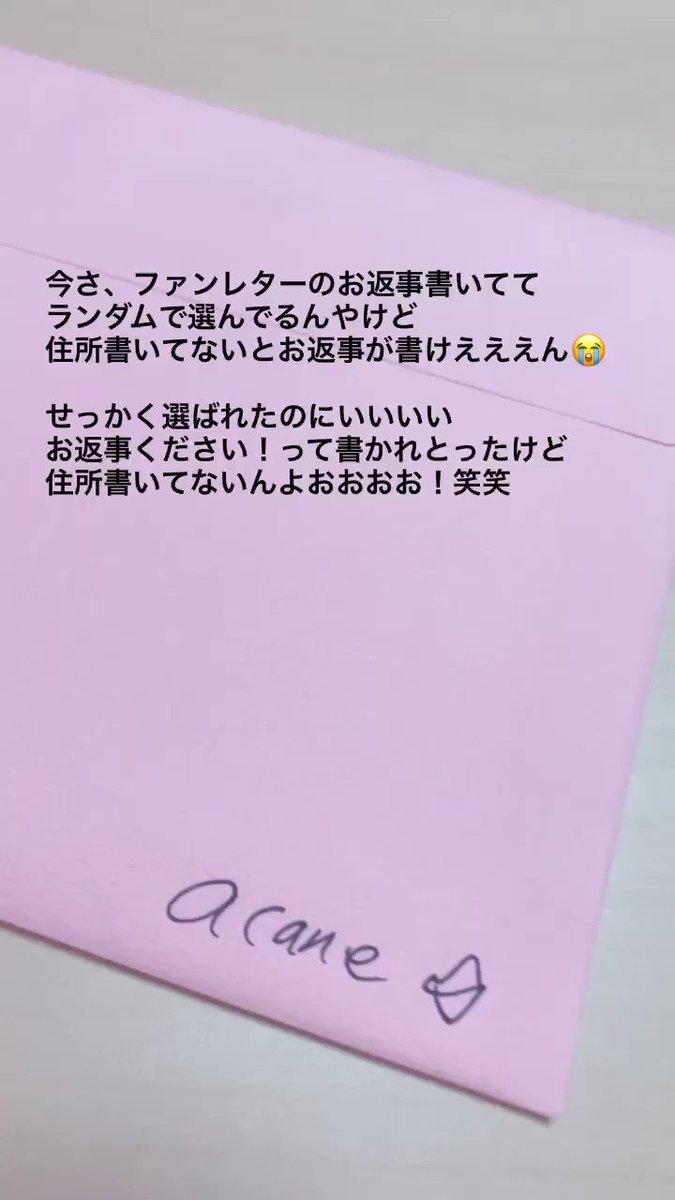 今さ、ファンレターのお返事書いてて
ランダムで選んでるんやけど
住所書いてないとお返事が書けええええん😭
せっかく選ばれたのにいいいい
お返事ください！って書かれとったけど
住所書いてないんよおおおお！笑笑
acane